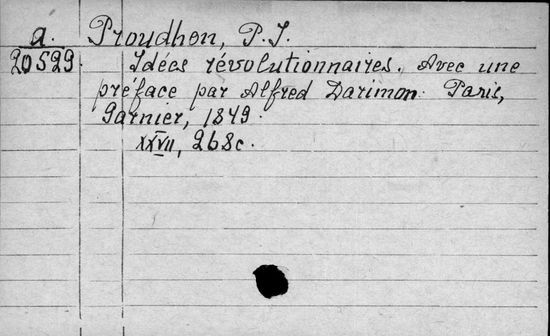 a. Proudhon, P. J.
20529 Idées révolutionnaires. Avec une
préface par Alfred Darimon. Paris,
Garnier, 1849.
XXVII, 268c.